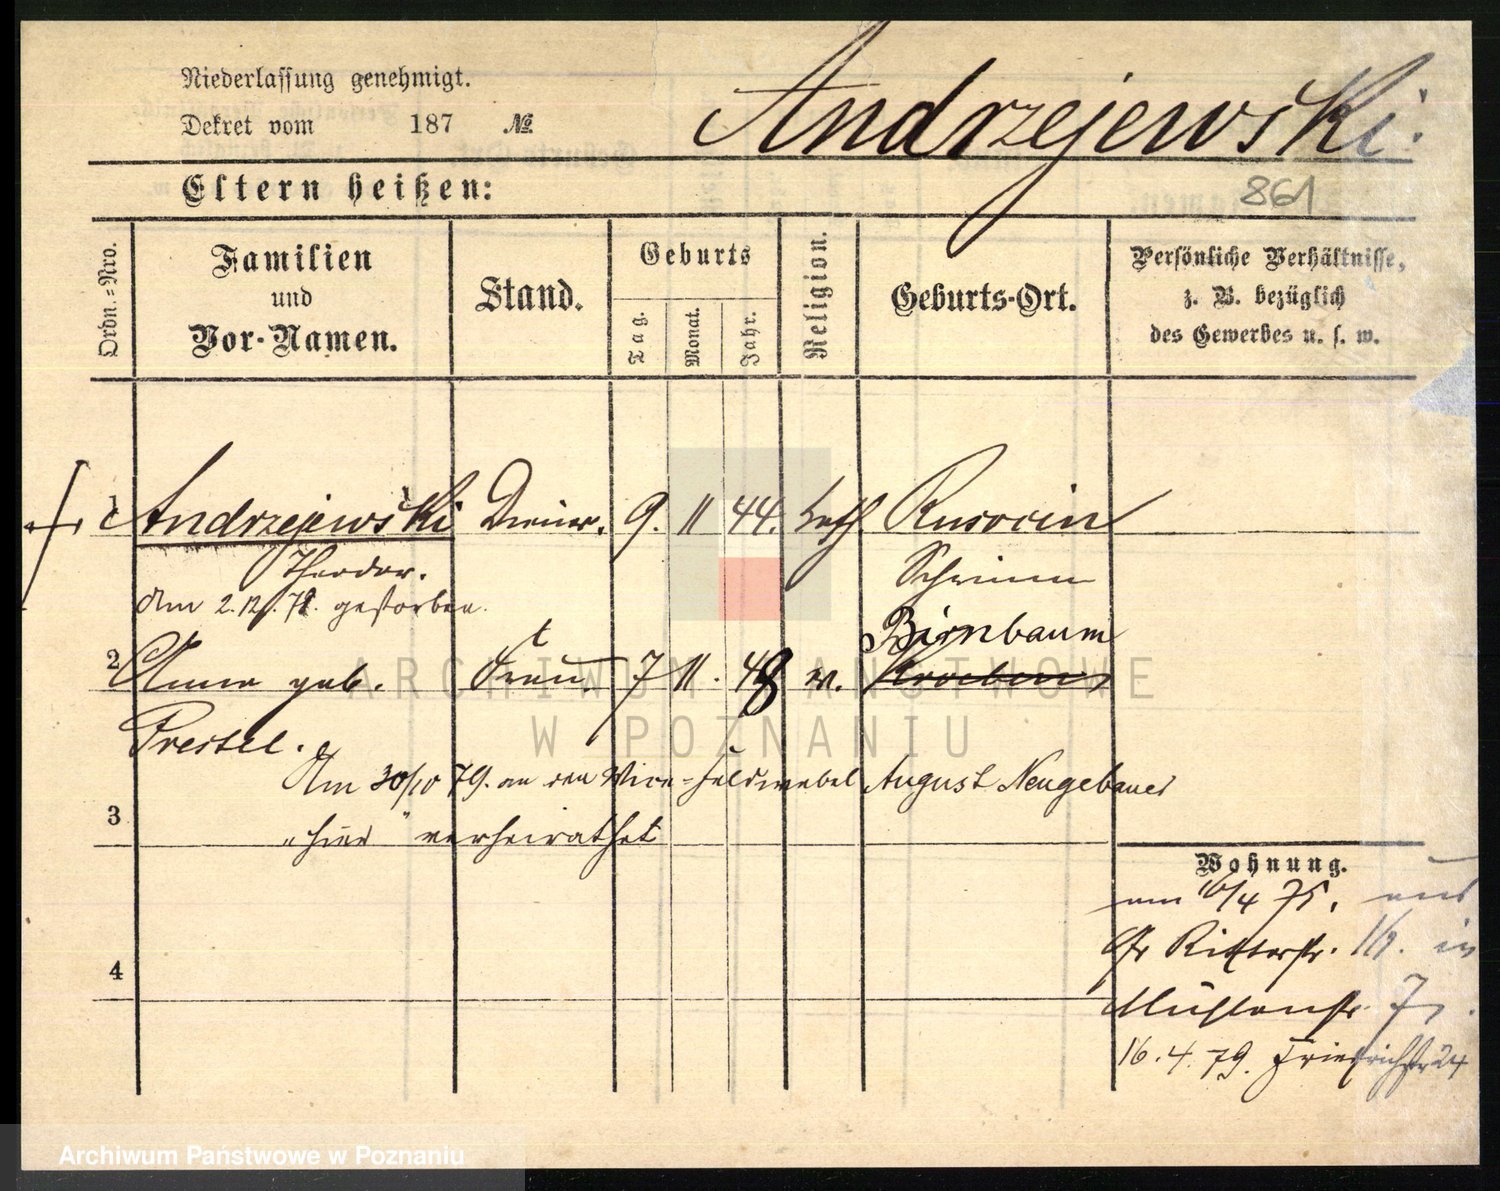 Niederlassung genehmigt.
Dekret vom 187 №
Andrzejewski.
Eltern heißen:
861
Ordn.=Nro.
Familien
und
Vor-Namen.
Stand.
Geburts
Tag.
Monat.
Jahr.
Religion.
Geburts-Ort.
Persönliche Verhältnisse,
z. B. bezüglich
des Gewerbes u. s. w.
1 Andrzejewski Diener. 9. 11 44. kath. Rusocin
Theodor. Schrimm
Am 2.12.78. gestorben.
Birnbaum
2 Anna geb. Frau. 7 11. 48 ev. Kroeben
Prestel.
Am 30/10 79. an den Vice-Feldwebel August Neugebauer
3 "hier" verheirathet
Wohnung.
am 16/4 75. aus
Gr Ritterstr. 16. in
4
Mühlenstr. 7.
16.4.79. Friedrichstr 24
ARCHIWUM PAŃSTWOWE
W POZNANIU
Archiwum Państwowe w Poznaniu